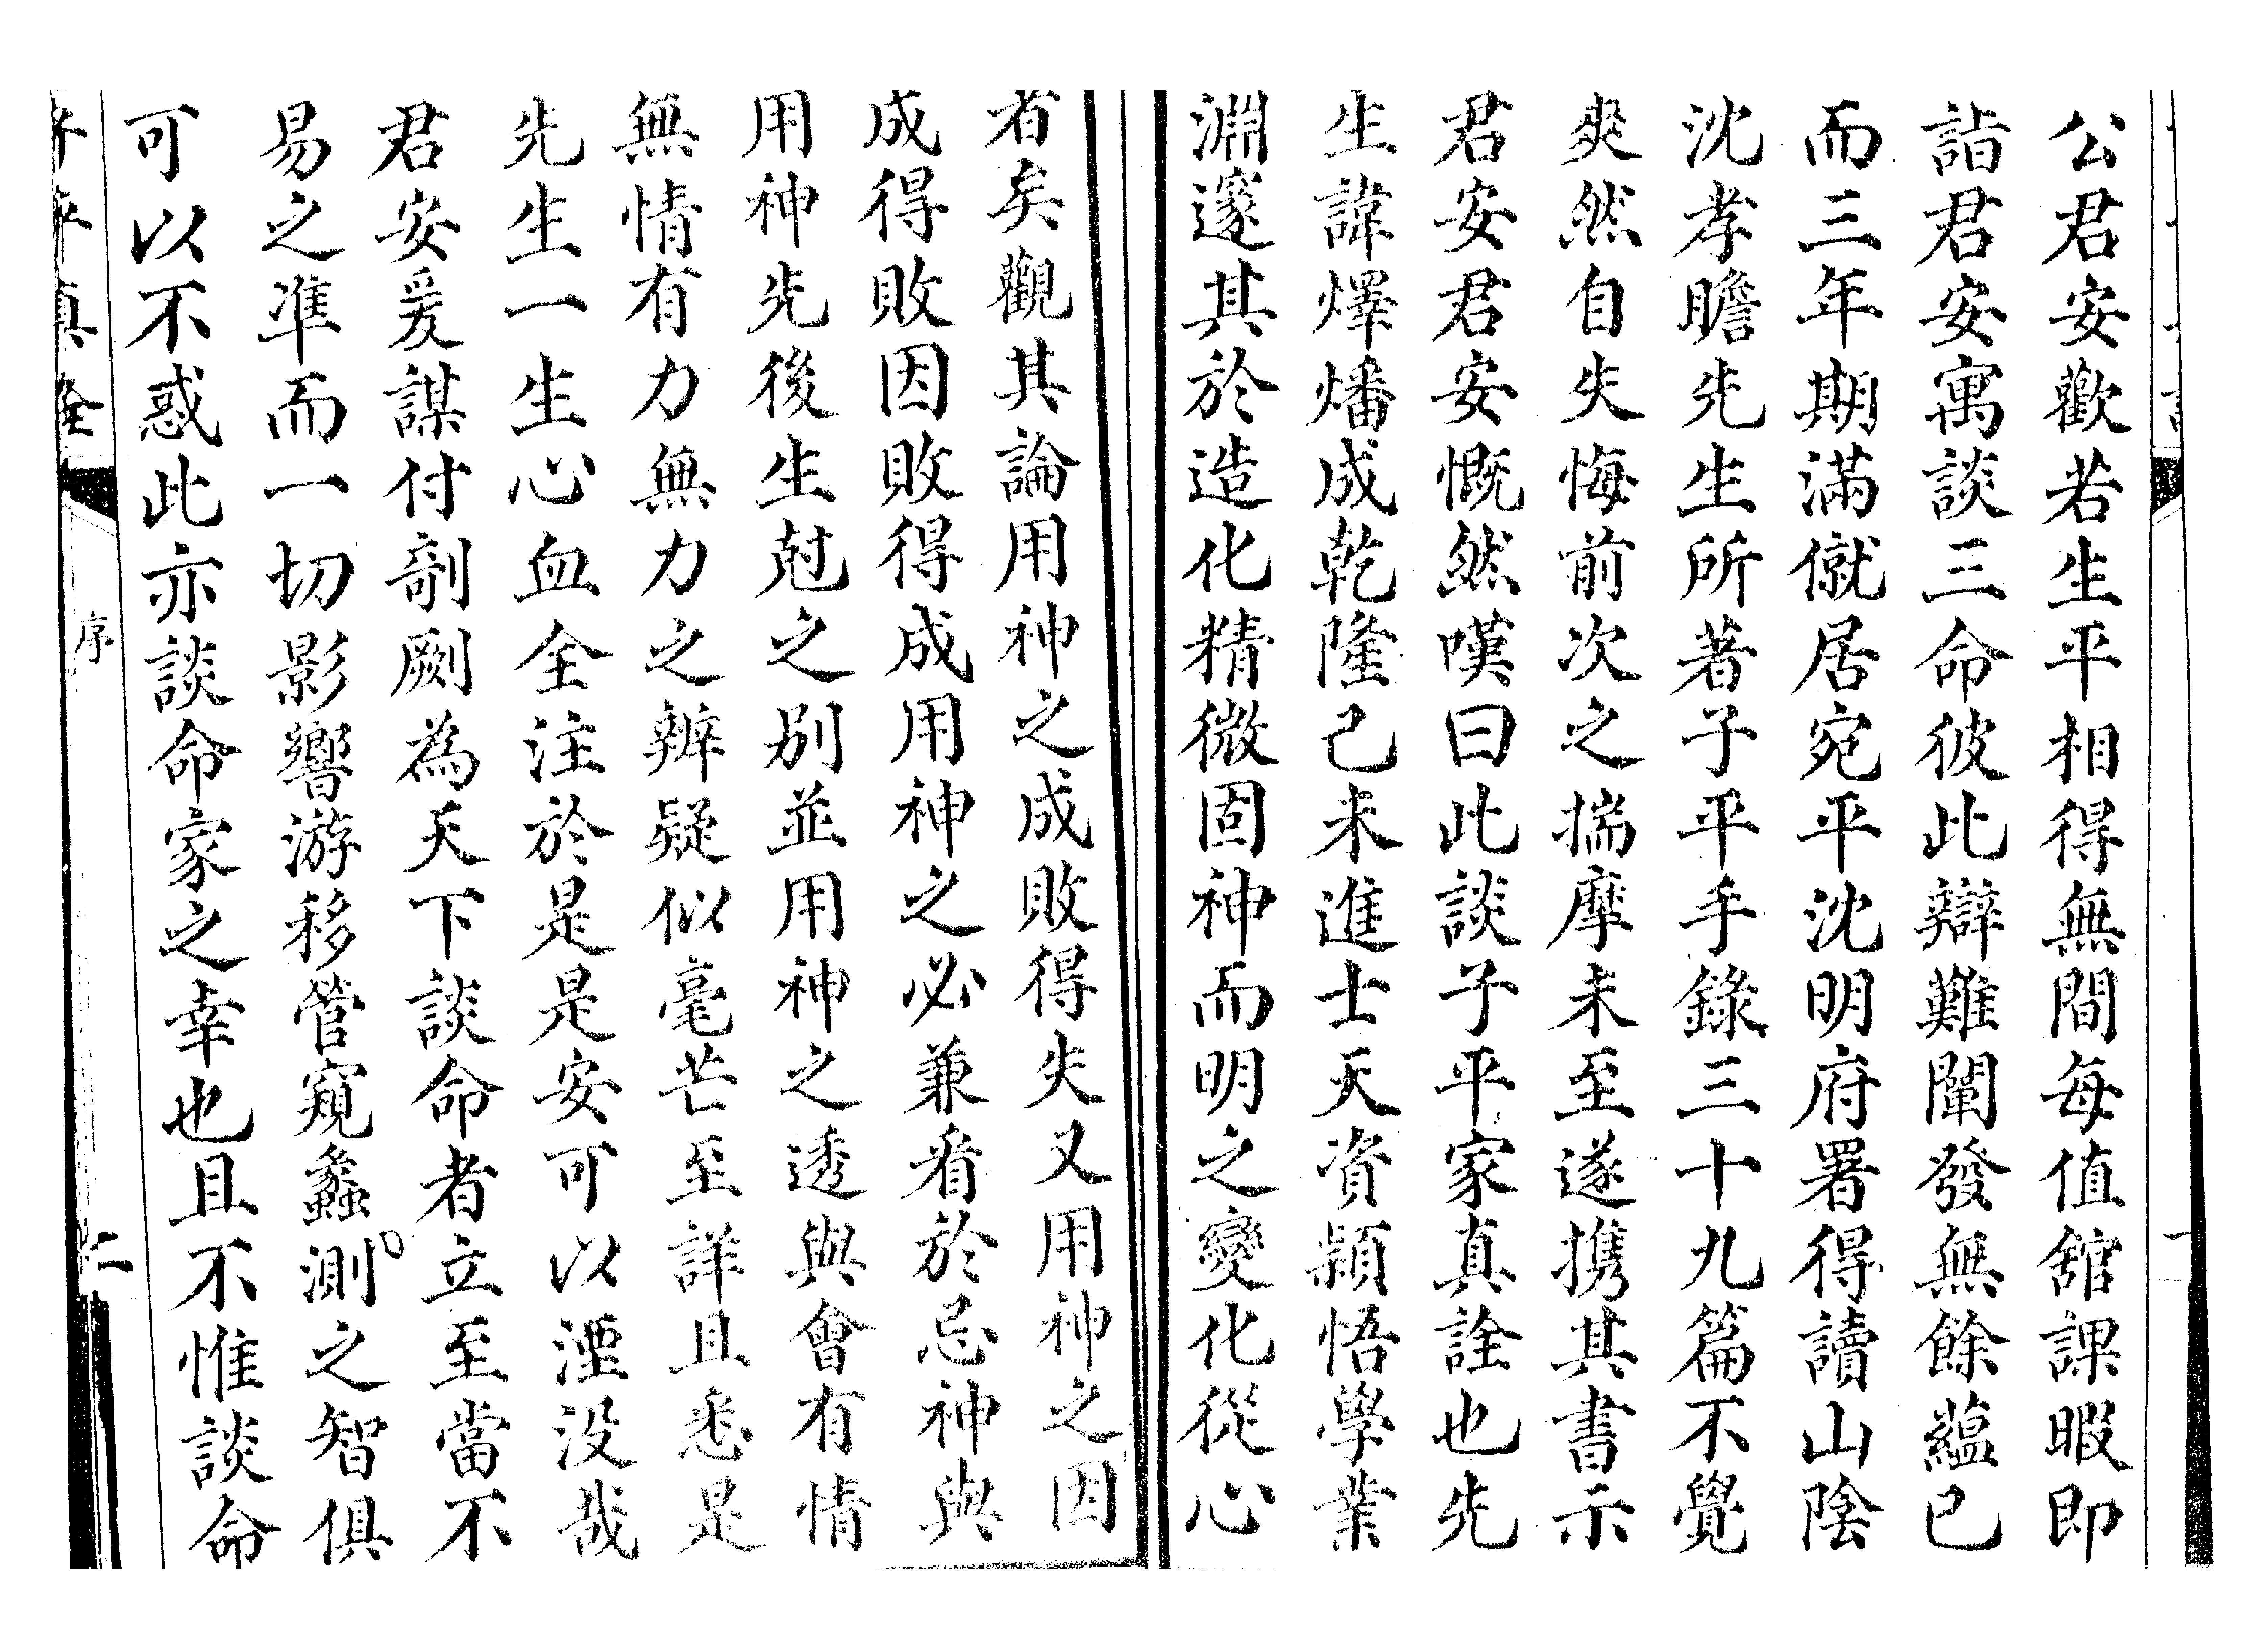 公君安歡若生平相得無間每值舘課暇即
詣君安寓談三命彼此辯難闡發無餘蘊已
而三年期滿僦居宛平沈明府署得讀山陰
沈孝瞻先生所著子平手錄三十九篇不覺
爽然自失悔前次之揣摩未至遂携其書示
君安君安慨然嘆曰此談子平家真詮也先
生諱燡燔成乾隆己未進士天資頴悟學業
淵邃其於造化精微固神而明之變化從心
者矣觀其論用神之成敗得失又用神之因
成得敗因敗得成用神之必兼看於忌神與
用神先後生尅之別並用神之透與會有情
無情有力無力之辨疑似毫芒至詳且悉是
先生一生心血全注於是是安可以湮没哉
君安爰謀付剞劂為天下談命者立至當不
易之準而一切影響游移管窺蠡測之智俱
可以不惑此亦談命家之幸也且不惟談命
子平真詮
序
二